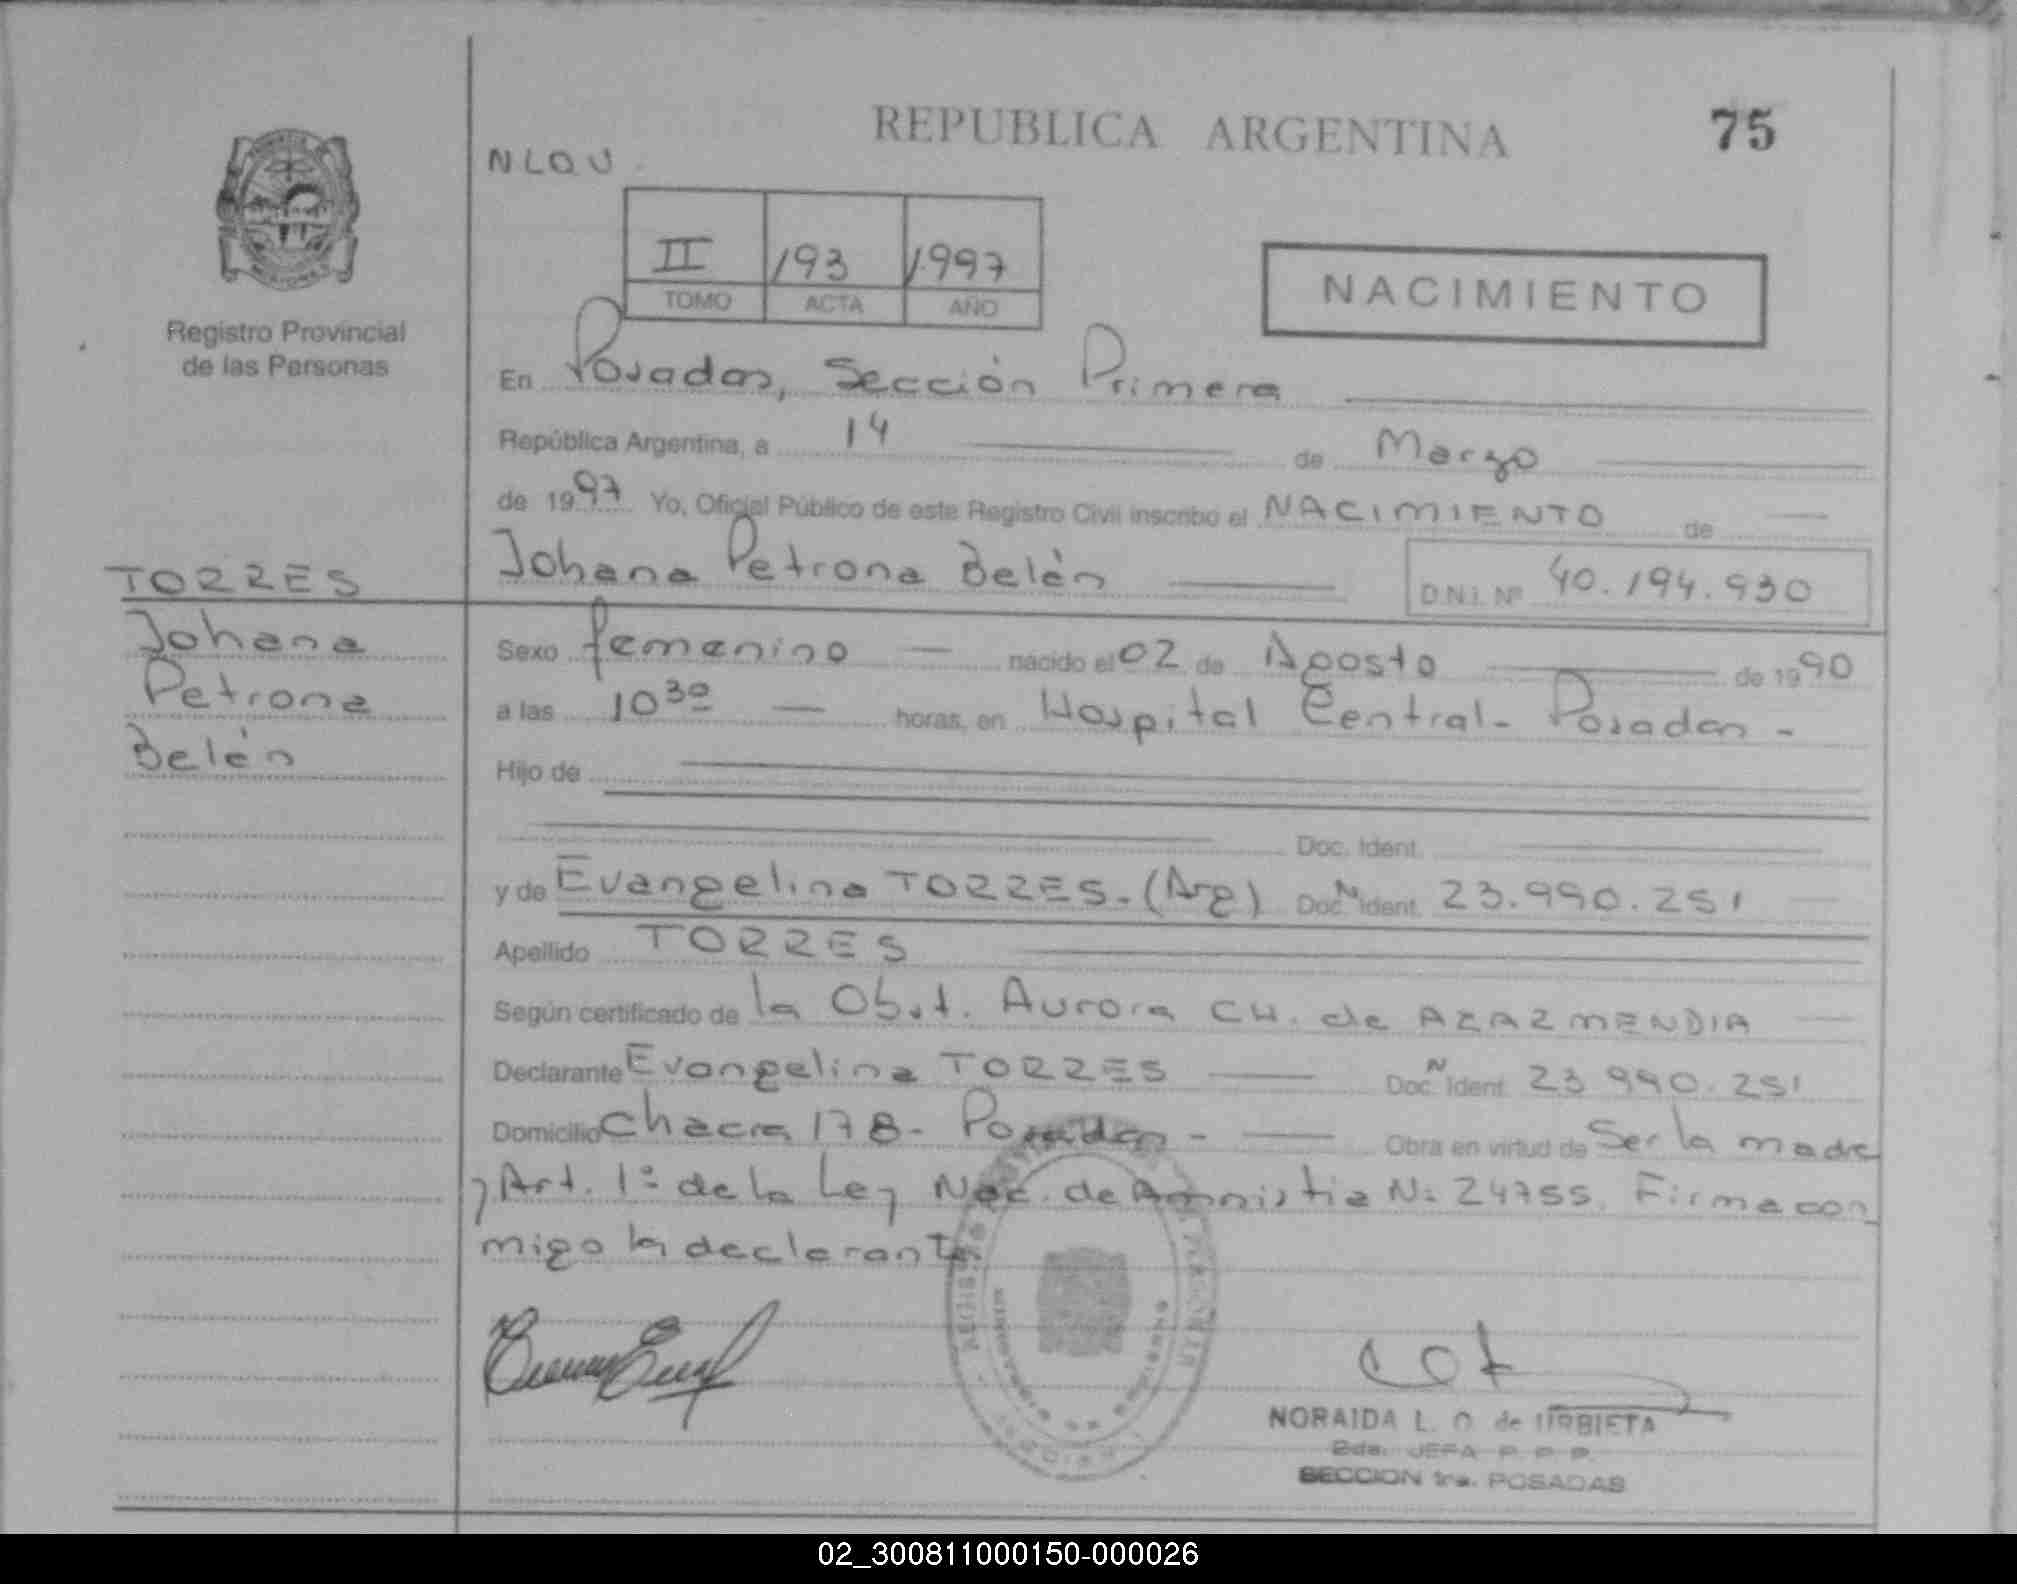 REPUBLICA ARGENTINA
75
NLOU
II 193 1997
TOMO ACTA AÑO
NACIMIENTO
Registro Provincial
de las Personas
En Posadas, Sección Primera
República Argentina, a 14 de Marzo
de 1997 Yo, Oficial Público de este Registro Civil inscribo el NACIMIENTO de
Johana Petrona Belén D.N.I. Nº 40.194.930
TORRES
Johana
Petrona
Belén
Sexo femenino nacido el 02 de Agosto de 1990
a las 10 30 horas, en Hospital Central - Posadas -
Hijo de
Doc. Ident.
y de Evangelina TORRES - (Arg) Doc. N Ident. 23.990.251
Apellido TORRES
Según certificado de la Obst. Aurora CH. de ARAZMENDIA
Declarante Evangelina TORRES Doc. N Ident. 23 990.251
Domicilio Chacra 178 - Posadas - Obra en virtud de Ser la madre
y Art. 1º de la Ley Nac. de Amnistia Nº 24755. Firma con
migo la declarante.
NORAIDA L. O. de URBIETA
2da. JEFA R. P. P.
SECCION 1ra. POSADAS
02_300811000150-000026